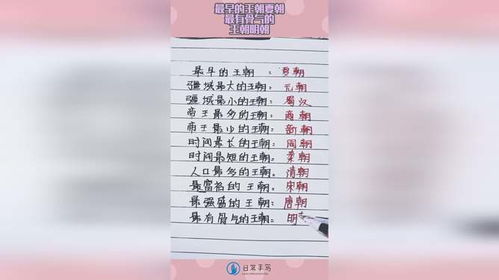 最早的王朝夏朝
最有骨气的
王朝明朝
最早的王朝：夏朝
疆域最大的王朝：元朝
疆域最小的王朝：蜀汉
帝王最多的王朝：商朝
帝王最少的王朝：新朝
时间最长的王朝：周朝
时间最短的王朝：秦朝
人口最多的王朝：清朝
最富名的王朝：宋朝
最强盛的王朝：唐朝
最有骨气的王朝：明
日常手写